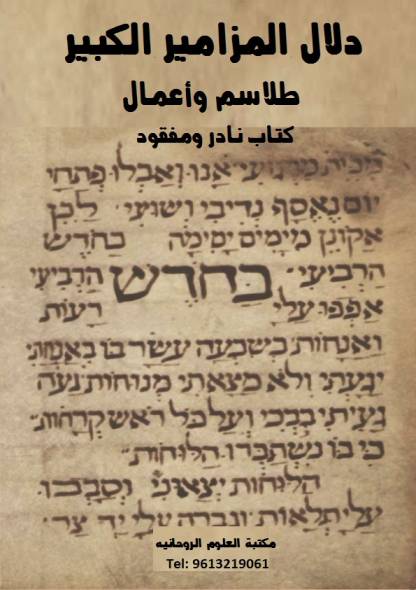 دلال المزامير الكبير
طلاسم وأعمال
كتاب نادر ومفقود
אנו ואבלו פתחי
יום נאסף נדיבי ושועי. לכן
אקונן מימים ימימה בחדש
הרביעי. בחדש הרביעי
אפפו עלי רעות
ואנחות בשבעה עשר בו באנחותי
יגעתי ולא מצאתי מנוחות נעה
נעיתי בבכי ועל כל ראש קרחות
כי בו נשתברו הלוחות
הלוחות יצאוני וסבבו
עלי תלאות וגברה עלי יד צר
مكتبة العلوم الروحانيه
Tel: 9613219061